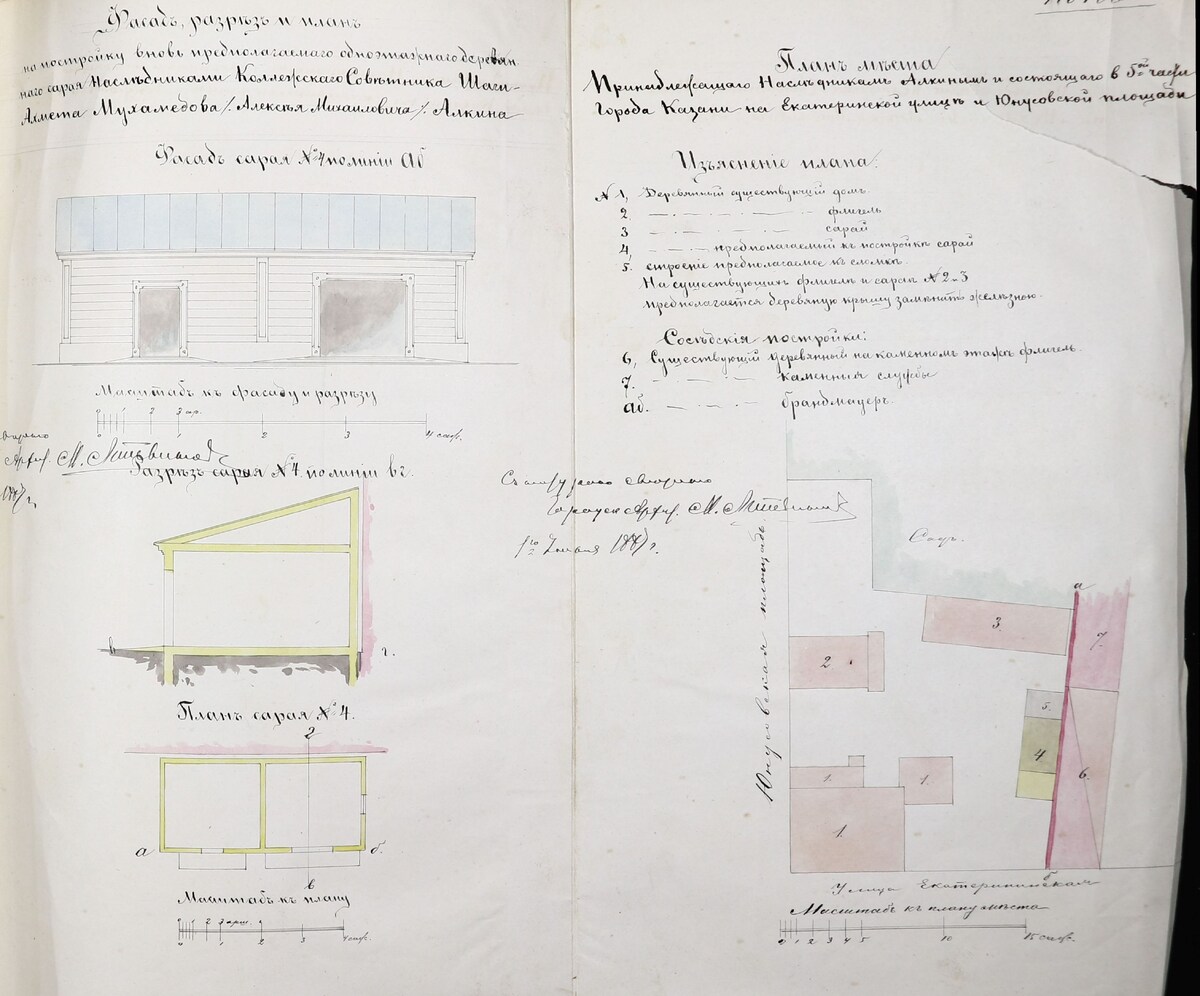 Фасадъ, разрѣзъ и планъ
на постройку вновь предполагаемаго одноэтажнаго деревян
наго сарая Наслѣдниками Коллежскаго Совѣтника Шаги-
Ахмета Мухамедова /Алексѣя Михаиловича/ Алкина
Фасадъ сарая №4 по линіи аб
Масштабъ къ фасаду и разрѣзу
0 1 2 3 ар.
1 2 3 4 саж.
Арх. М. Литвиновъ
Разрѣзъ сарая №4 по линіи вг.
г.
Планъ сарая №4.
г
а
б.
в
Масштабъ къ плану
2 3 арш.
0 1 2 3 4 саж.
Планъ мѣста
Принадлежащаго Наслѣдникамъ Алкинымъ и состоящаго въ 5ой части
Города Казани на Екатерининской улицѣ и Юнусовской площади
Изъясненіе плана:
№ 1, Деревянный существующій домъ.
2. флигель
3 сарай
4, предполагаемый къ постройкѣ сарай
5. строеніе предполагаемое къ сломкѣ.
На существующихъ флигелѣ и сараѣ №2 и 3
предполагается деревяную крышу замѣнить желѣзною.
Сосѣдскія постройки:
6, Существующій деревянный на каменномъ этажѣ флигель.
7. каменныя службы
аб. брандмауеръ.
М. Литвиновъ
Садъ.
Юнусовская площадь.
а
3.
7.
2
5.
4
6.
1.
1.
1.
б
Улица Екатерининская
Масштабъ къ плану мѣста
0 1 2 3 4 5 10 15 саж.